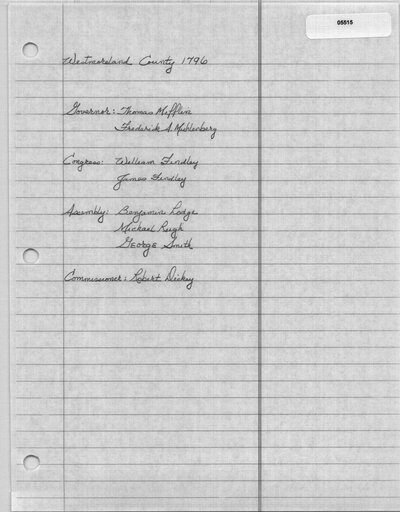 05515
Westmoreland County 1796
Governor: Thomas Mifflin
Frederick A. Muhlenberg
Congress: William Findley
James Findley
Assembly: Benjamin Lodge
Mickael Rugh
George Smith
Commissioner: Robert Dickey